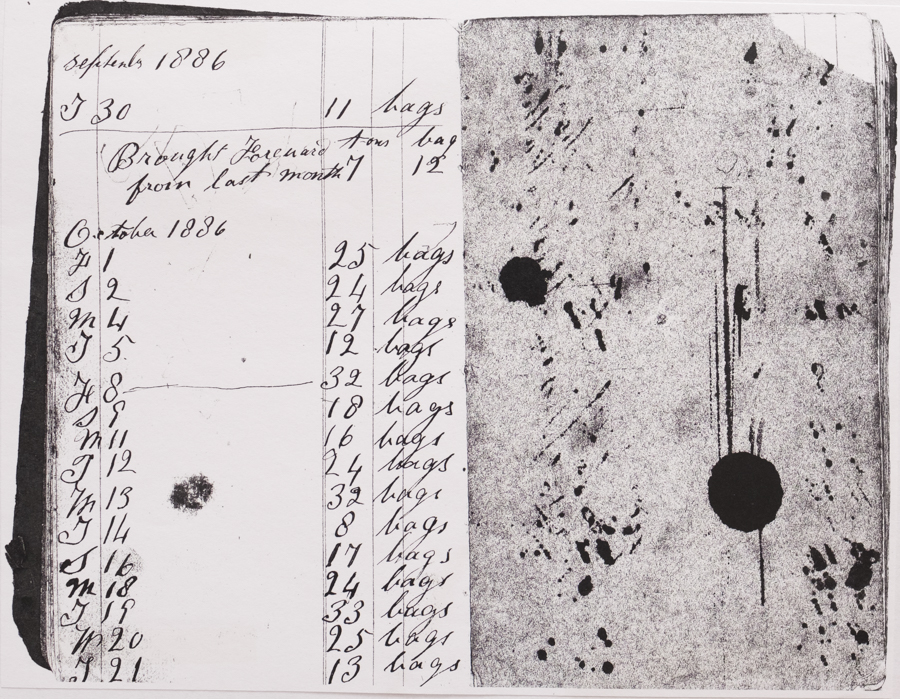 September 1886
T 30 11 bags
Brought Foreward tons bag
from last month 7 12
October 1886
F 1 25 bags
S 2 24 bags
M 4 27 bags
T 5 12 bags
F 8 32 bags
S 9 18 bags
M 11 16 bags
T 12 24 bags
W 13 32 bags
T 14 8 bags
S 16 17 bags
M 18 24 bags
T 19 33 bags
W 20 25 bags
T 21 13 bags